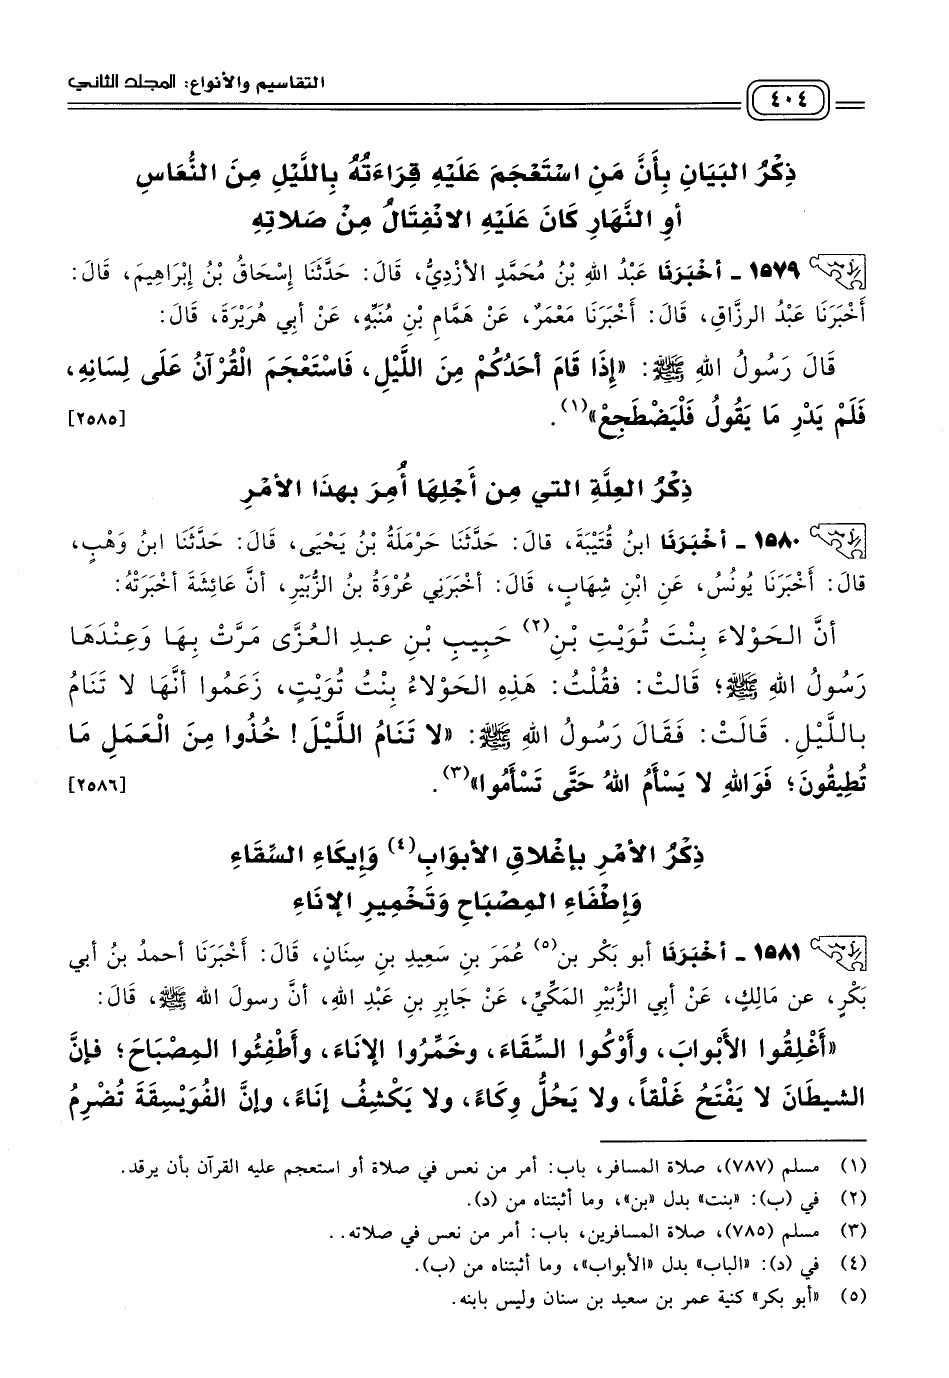 التقاسيم والأنواع: المجلد الثاني
٤٠٤
ذِكْرُ البَيَانِ بِأَنَّ مَنِ اسْتَعْجَمَ عَلَيْهِ قِرَاءَتُهُ بِاللَّيْلِ مِنَ النُّعَاسِ
أوِ النَّهَارِ كَانَ عَلَيْهِ الانْفِتَالُ مِنْ صَلاتِهِ
١٥٧٩ ـ أخْبَرَنَا عَبْدُ اللهِ بْنُ مُحَمَّدٍ الأزْدِيُّ، قَالَ: حَدَّثَنَا إِسْحَاقُ بْنُ إبْرَاهِيمَ، قَالَ:
أَخْبَرَنَا عَبْدُ الرزَّاقِ، قَالَ: أَخْبَرَنَا مَعْمَرٌ، عَنْ هَمَّامِ بْنِ مُنَبِّهٍ، عَنْ أبي هُرَيْرَةَ، قَالَ:
قَالَ رَسُولُ اللهِ ﷺ: «إِذَا قَامَ أحَدُكُمْ مِنَ اللَّيْلِ، فَاسْتَعْجَمَ الْقُرْآنُ عَلَى لِسَانِهِ،
فَلَمْ يَدْرِ مَا يَقُولُ فَلْيَضْطَجِعْ»(١). [٢٥٨٥]
ذِكْرُ العِلَّةِ التي مِن أَجْلِهَا أُمِرَ بِهذَا الأمْرِ
١٥٨٠ ـ أخْبَرَنَا ابنُ قُتَيْبَةَ، قالَ: حَدَّثَنَا حَرْمَلَةُ بْنُ يَحْيَى، قَالَ: حَدَّثَنَا ابنُ وَهْبٍ،
قالَ: أَخْبَرَنَا يُونُسُ، عَنِ ابْنِ شِهَابٍ، قَالَ: أخْبَرَنِي عُرْوَةُ بنُ الزُّبَيْرِ، أنَّ عَائِشَةَ أخْبَرَتْهُ:
أنَّ الحَوْلاءَ بِنْتَ تُوَيْتِ بْنِ(٢) حَبِيبِ بْنِ عبدِ العُزَّى مَرَّتْ بِهَا وَعِنْدَهَا
رَسُولُ اللهِ ﷺ؛ قَالتْ: فقُلْتُ: هَذِهِ الحَوْلاءُ بِنْتُ تُوَيْتٍ، زَعَمُوا أنَّهَا لا تَنَامُ
بِاللَّيْلِ. قَالَتْ: فَقَالَ رَسُولُ اللهِ ﷺ: «لا تَنَامُ اللَّيْلَ! خُذُوا مِنَ الْعَمَلِ مَا
تُطِيقُونَ؛ فَوَاللهِ لا يَسْأَمُ اللهُ حَتَّى تَسْأَمُوا»(٣). [٢٥٨٦]
ذِكْرُ الأمْرِ بِإغْلاقِ الأبوَابِ(٤) وَإيكَاءِ السِّقَاءِ
وَإطْفَاءِ المِصْبَاحِ وَتَخْمِيرِ الإنَاءِ
١٥٨١ ـ أخْبَرَنَا أبو بَكْر بن(٥) عُمَرَ بنِ سَعِيدِ بنِ سِنَانٍ، قَالَ: أَخْبَرَنَا أحمدُ بنُ أبي
بَكْرٍ، عن مَالِكٍ، عَنْ أبي الزُّبَيْرِ المَكِّيِّ، عَنْ جَابِرِ بنِ عَبْدِ اللهِ، أنَّ رسولَ الله ﷺ، قَالَ:
«أَغْلِقُوا الأَبْوَابَ، وَأَوْكُوا السِّقَاءَ، وخَمِّرُوا الإنَاءَ، وأَطْفِئُوا المِصْبَاحَ؛ فإنَّ
الشيطَانَ لا يَفْتَحُ غَلْقاً، ولا يَحُلُّ وِكَاءً، ولا يَكْشِفُ إنَاءً، وإنَّ الفُوَيْسِقَةَ تُضْرِمُ
(١) مسلم (٧٨٧)، صلاة المسافر، باب: أمر من نعس في صلاة أو استعجم عليه القرآن بأن يرقد.
(٢) في (ب): «بنت» بدل «بن»، وما أثبتناه من (د).
(٣) مسلم (٧٨٥)، صلاة المسافرين، باب: أمر من نعس في صلاته..
(٤) في (د): «الباب» بدل «الأبواب»، وما أثبتناه من (ب).
(٥) «أبو بكر» كنية عمر بن سعيد بن سنان وليس بابنه.